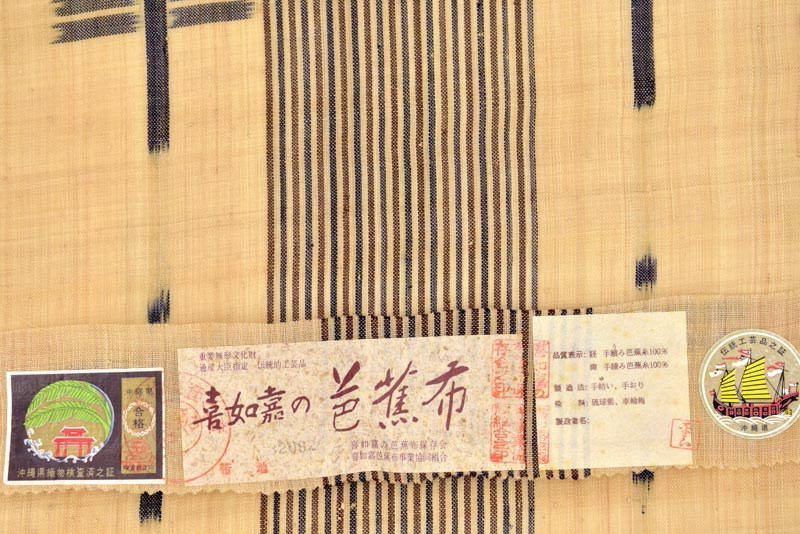 沖縄県
合格
沖縄県織物検査済之証
重要無形文化財
通産大臣指定 伝統的工芸品
喜如嘉の芭蕉布
喜如嘉の芭蕉布保存会
喜如嘉芭蕉布事業協同組合
品質表示: 経 手績み芭蕉糸100%
緯 手績み芭蕉糸100%
製造法: 手結い、手おり
染料: 琉球藍、車輪梅
製造者名:
伝統工芸品之証
沖縄県